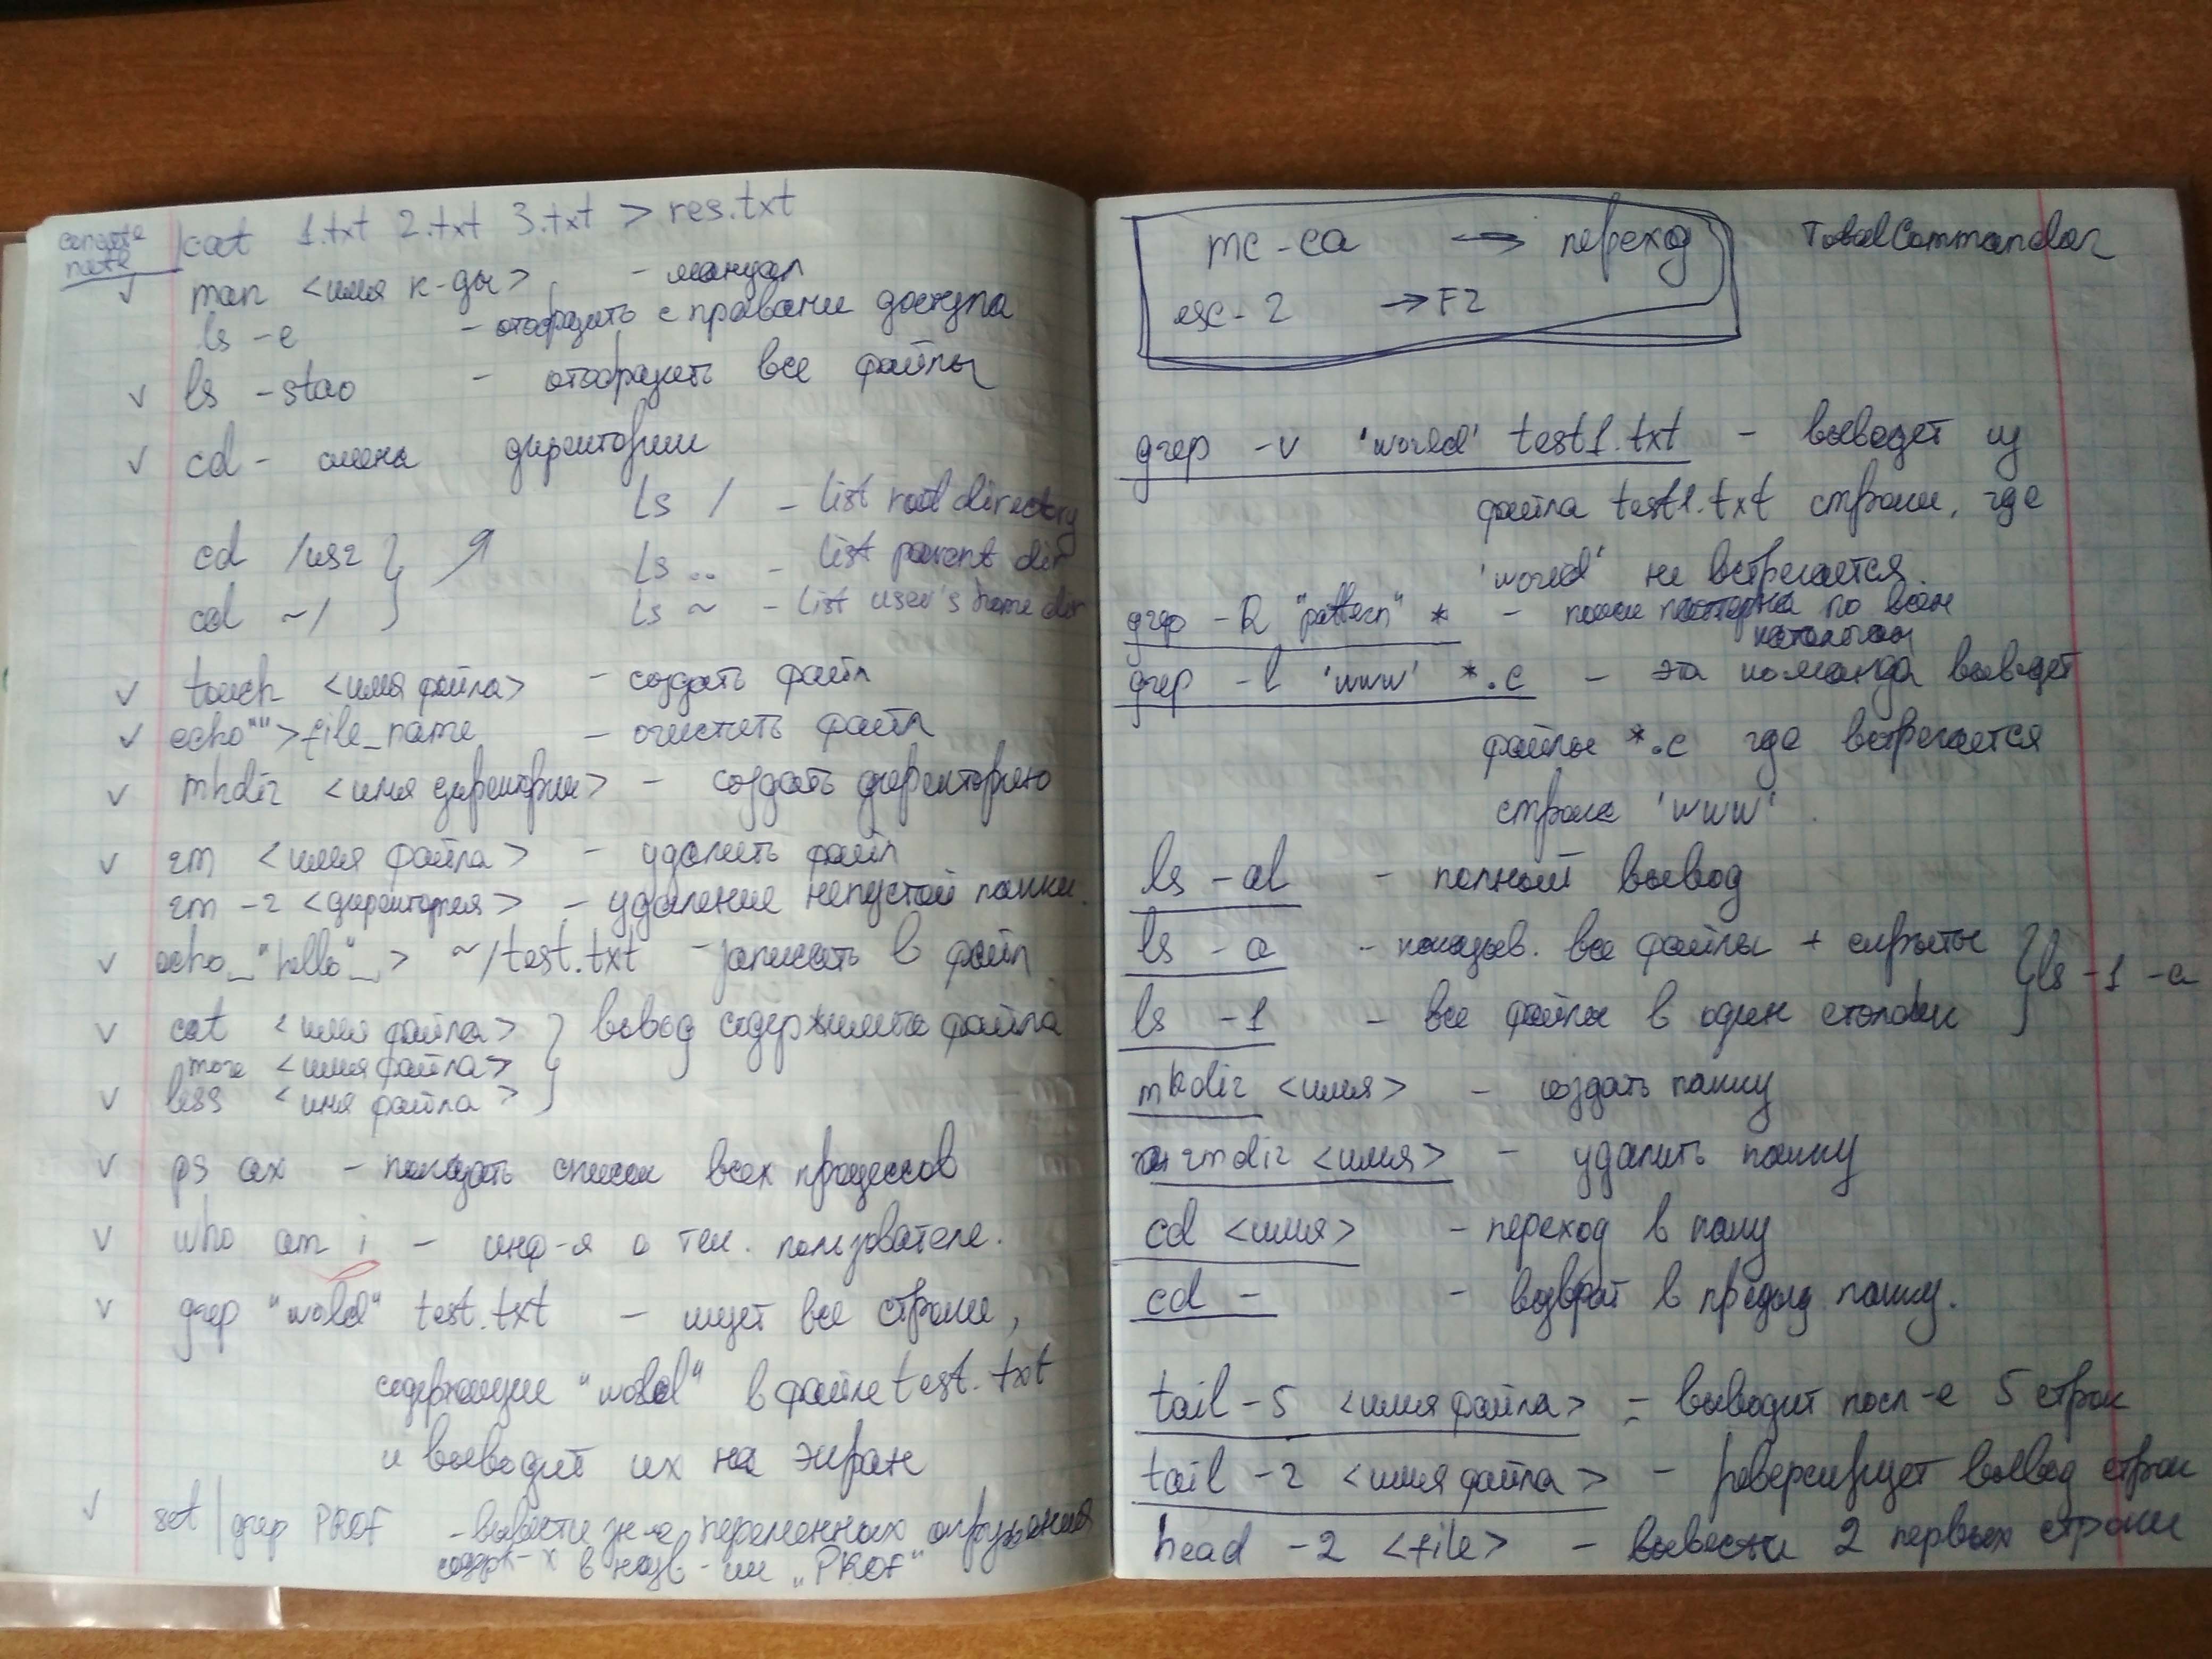 cat 1.txt 2.txt 3.txt > res.txt
man <имя к-ды> - мануал
ls -e - отобразить с правами доступа
ls -stao - отобразить все файлы
cd - смена директории
ls / - list root directory
cd /usr
ls .. - list parent dir
cd ~/
ls ~ - list user's home dir
touch <имя файла> - создать файл
echo"">file_name - очистить файл
mkdir <имя директории> - создать директорию
rm <имя файла> - удалить файл
rm -r <директория> - удаление непустой папки.
echo_"hello"_> ~/test.txt - записать в файл
cat <имя файла> } вывод содержимого файла
more <имя файла>
less <имя файла>
ps ax - показать список всех процессов
who am i - инф-я о тек. пользователе.
grep "wold" test.txt - ищет все строки,
содержащие "wold" в файле test.txt
и выводит их на экран
set | grep PROF - вывести зн-е переменных окружения
содерж-х в назв-ии „PROF"
mc-ca → переход
TotalCommandor
esc-2 → F2
grep -v 'world' test1.txt - выведет из
файла test1.txt строки, где
'world' не встречается.
grep -R "pattern" * - поиск паттерна по всем
каталогам
grep -l 'www' *.c - эта команда выведет
файлы *.c где встречается
строка 'www'.
ls -al - полный вывод
ls -a - показыв. все файлы + скрытые
ls -1 -a
ls -1 - все файлы в один столбик
mkdir <имя> - создать папку
rmdir <имя> - удалить папку
cd <имя> - переход в папку
cd - - возврат в предыд папку.
tail -5 <имя файла> - выводит посл-е 5 строк
tail -r <имя файла> - реверсирует вывод строк
head -2 <file> - вывести 2 первых строки